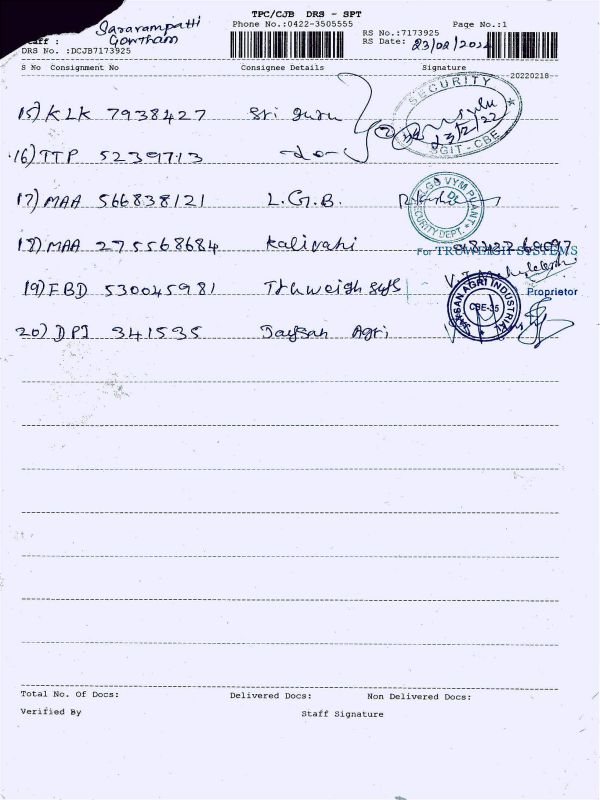 TPC/CJB DRS - SPT
Saravampatti
Phone No.:0422-3505555
Page No.:1
Gowtham
RS No.:7173925
Staff :
RS Date: 23/02/2022
DRS No. :DCJB7173925
S No Consignment No Consignee Details Signature
20220218
15) KLK 7938427 Sri guru
SECURITY
23/2/22
SGIT-CBE
16) TTP 52397713 -do-
17) MAA 566838121 L.G.B.
SECURITY DEPT.
18) MAA 275568684 Kalivahi
For TRUWEIGH SYSTEMS
19) FBD 530045981 Truweigh sys
Proprietor
20) DPI 341535 Jaysan Agri
JAYSAN AGRI INDUSTRIAL
CBE-35
Total No. Of Docs: Delivered Docs: Non Delivered Docs:
Verified By Staff Signature